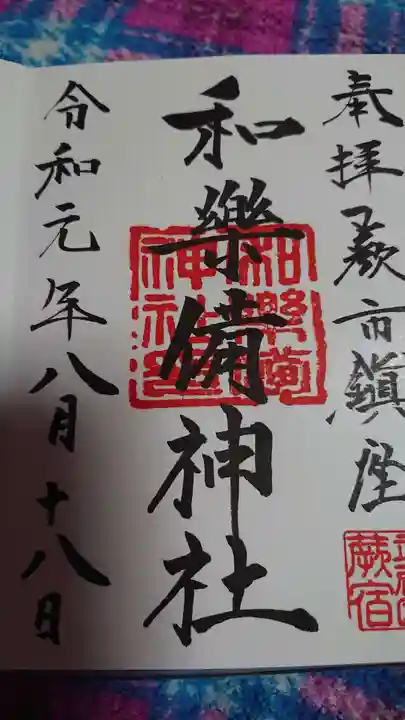 奉拝 蕨市鎮座
和樂備神社
令和元年八月十八日
和樂備
神社
蕨宿